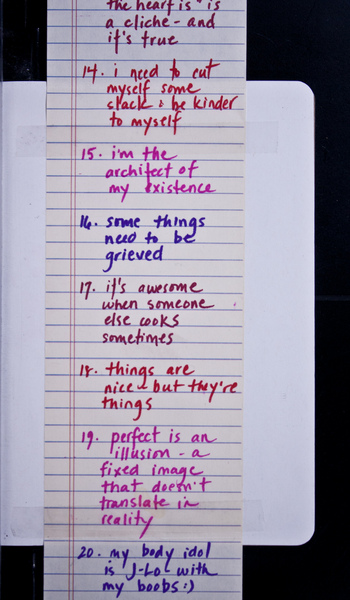 the heart is" is
a cliche - and
it's true
14. i need to cut
myself some
slack & be kinder
to myself
15. i'm the
architect of
my existence
16. some things
need to be
grieved
17. it's awesome
when someone
else cooks
sometimes
18. things are
nice - but they're
things
19. perfect is an
illusion - a
fixed image
that doesn't
translate in
reality
20. my body idol
is J-Lo with
my boobs :)